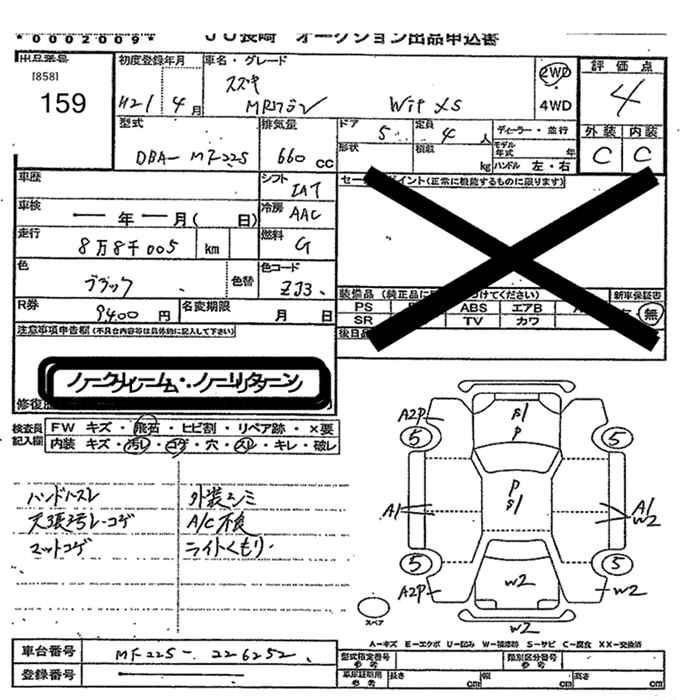 *0002009*
JU長崎 オークション出品申込書
出品番号
[858]
159
初度登録年月
H21 4月
車名・グレード
スズキ
MRワゴン Wit XS
2WD
4WD
評価点
4
外装 内装
C C
型式
DBA- MF22S
排気量
660 cc
ドア 5
定員 4 人
形状
積載 kg
ディーラー・並行
モデル年式 年
ハンドル 左・右
車歴
シフト
IAT
車検
年 月( 日)
冷房
AAC
走行
8万8千005 km
燃料
G
色
ブラック
色替
色コード
ZJ3
R券
9400円
名変期限
月 日
注意事項申告欄(不具合内容等は具体的に記入して下さい)
ノークレーム・ノーリターン
修復
(正常に機能するものに限ります)
装備品(純正品に
つけてください)
新車保証書
無
PS ABS エアB
SR TV カワ
後日品
検査員記入欄
FW キズ・飛石・ヒビ割・リペア跡・×要
内装 キズ・汚レ・コゲ・穴・スレ・キレ・破レ
ハンドルスレ 外装シミ
天張汚レ・コゲ A/C不良
マットコゲ ライトくもり
A2P
5
S1
P
5
P
S1
A1
A1
W2
5
A2P
W2
5
W2
W2
スペア
A−キズ E−エクボ U−凹み W−補修跡 S−サビ C−腐食 XX−交換済
車台番号
MF22S- 226252
登録番号
型式指定番号 参考
類別区分番号 参考
車庫証明用 参考
長さ cm
幅 cm
高さ cm